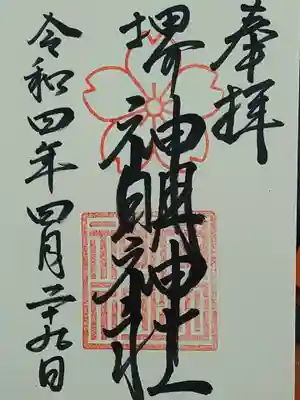 奉拝
堺
神明神社
令和四年四月二十九日